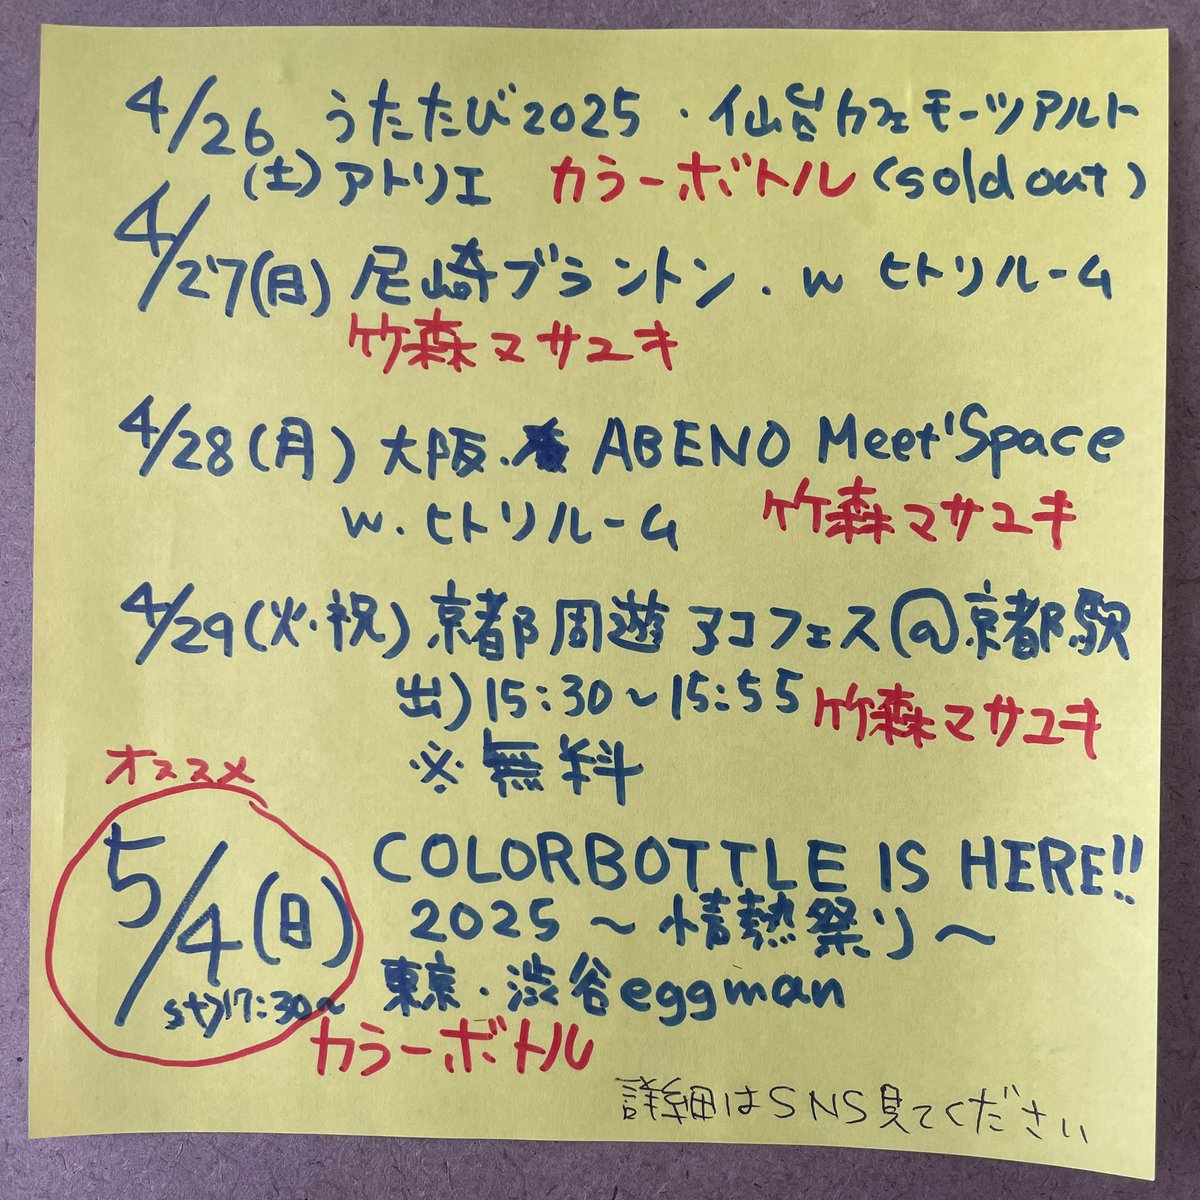 4/26 うたたび2025・仙台カフェモーツアルト
(土)アトリエ カラーボトル(sold out)
4/27(日) 尼崎ブラントン. w ヒトリルーム
竹森マサユキ
4/28(月) 大阪. ABENO Meet'Space
w. ヒトリルーム 竹森マサユキ
4/29(火・祝) 京都周遊アコフェス@京都駅
出)15:30~15:55 竹森マサユキ
※無料
オススメ
5/4(日) COLORBOTTLE IS HERE!!
2025 ~情熱祭り~
st)17:30~ 東京・渋谷eggman
カラーボトル
詳細はSNS見てください